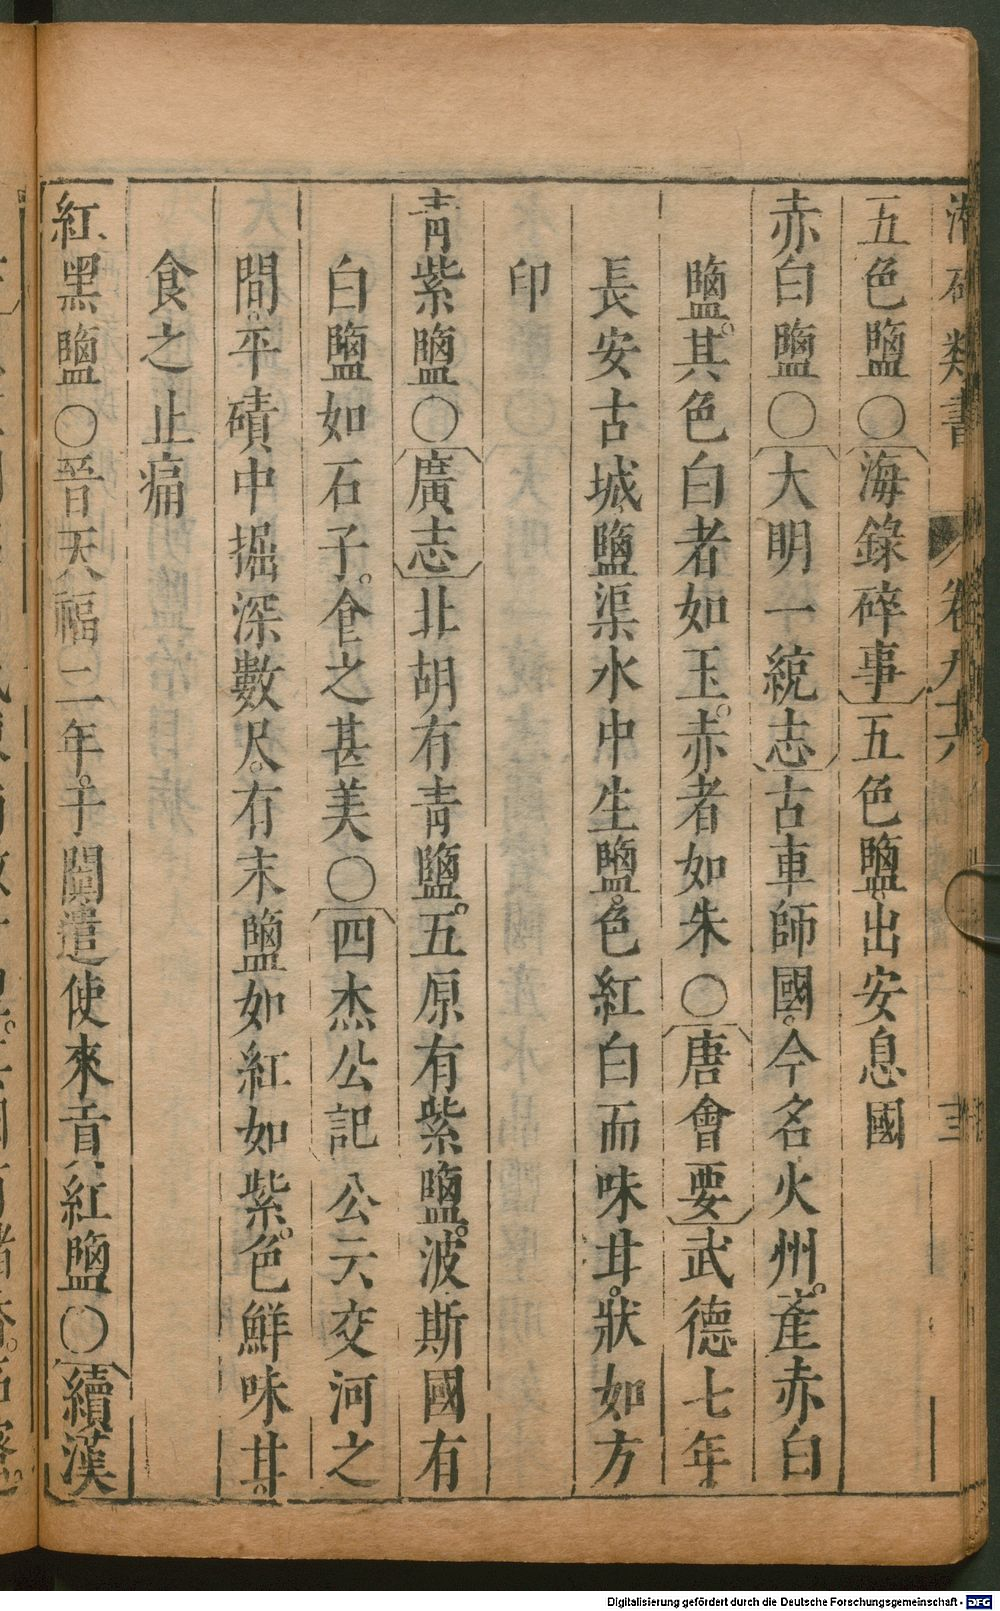 類書 卷九十六 三
五色鹽○海錄碎事五色鹽出安息國
赤白鹽○大明一統志古車師國。今名火州。產赤白
鹽。其色白者如玉。赤者如朱○唐會要武德七年
長安古城鹽渠水中生鹽。色紅白而味甘。狀如方
印
青紫鹽○廣志北胡有青鹽。五原有紫鹽。波斯國有
白鹽如石子。食之甚美○四杰公記公云交河之
間。平磧中掘深數尺。有末鹽如紅如紫。色鮮味甘。
食之止痛
紅黑鹽○晉天福二年。于闐遣使來貢紅鹽○續漢
Digitalisierung gefördert durch die Deutsche Forschungsgemeinschaft - DFG